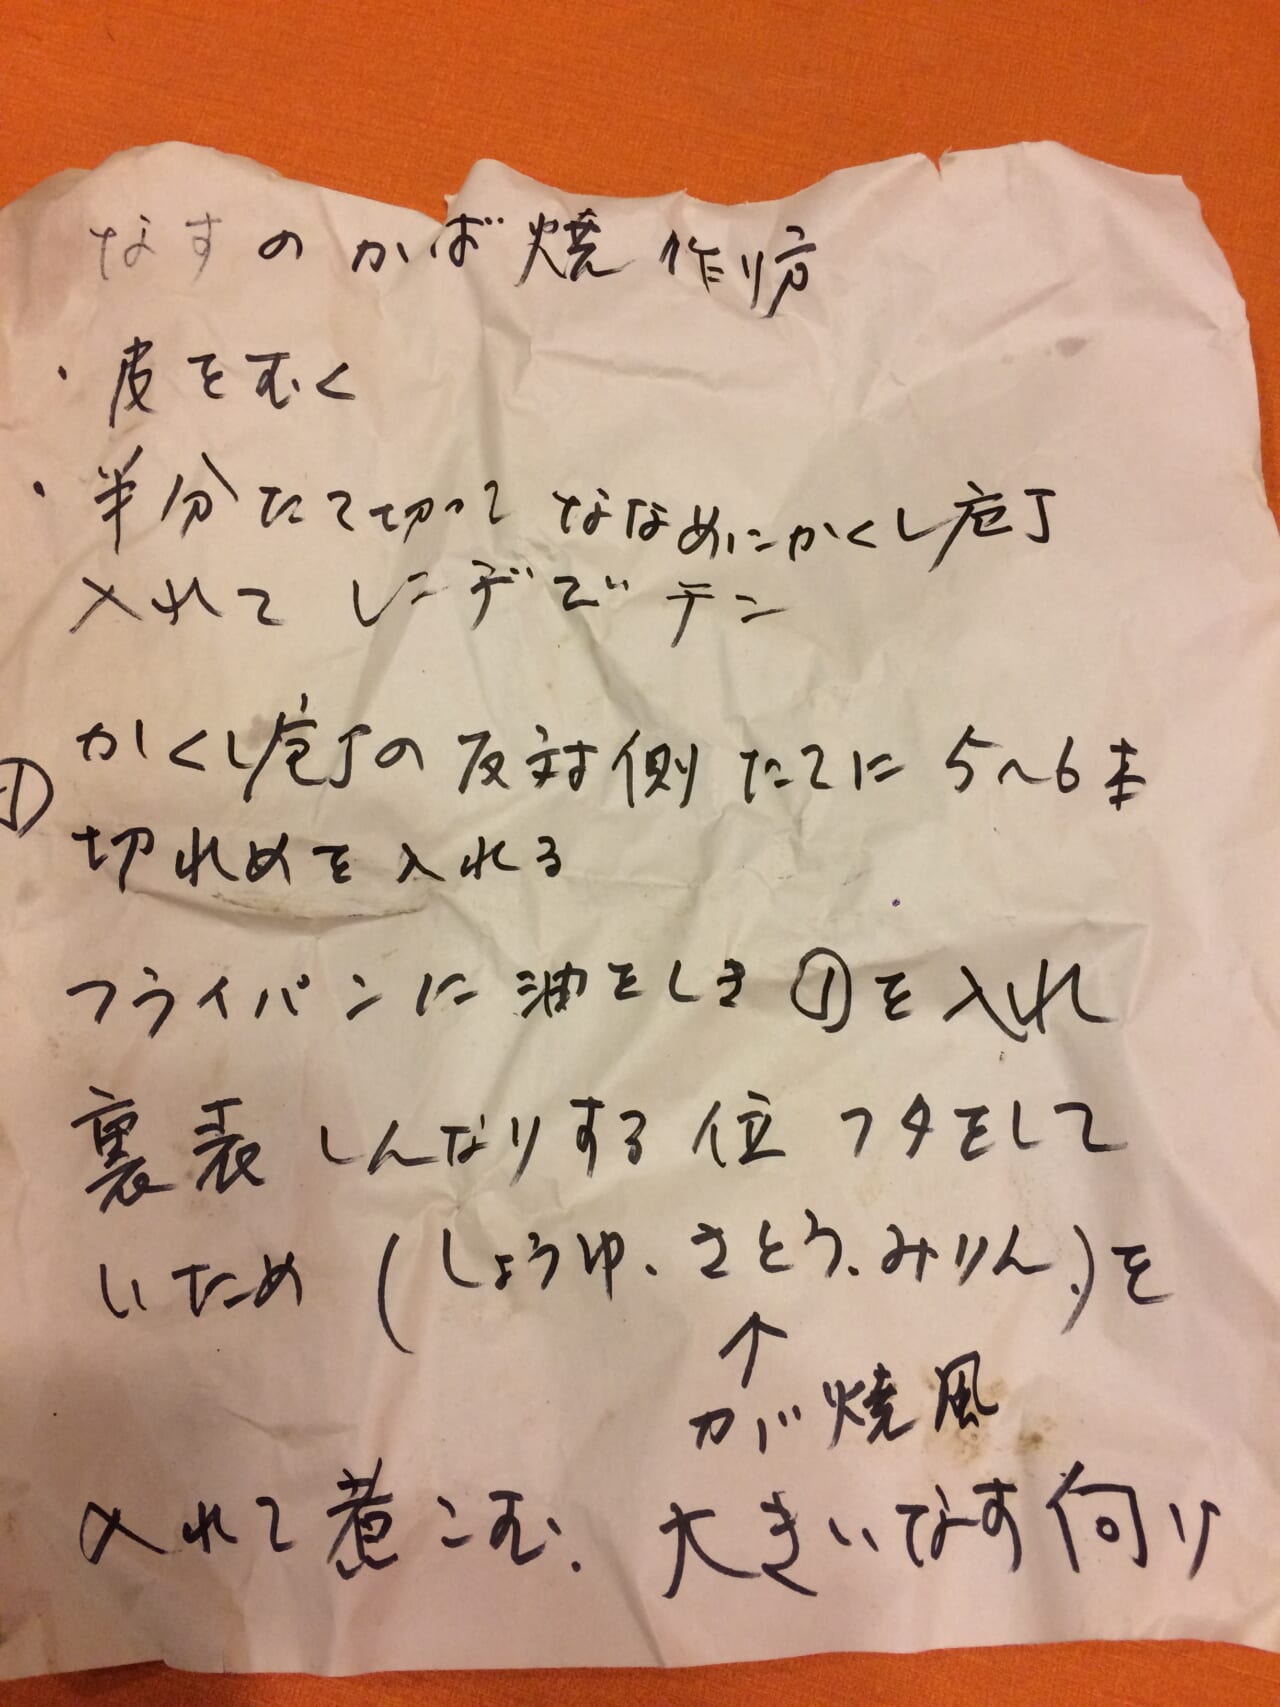 なすのかば焼 作り方
・皮をむく
・半分たて切って ななめにかくし庖丁
入れて レンヂでチン
① かくし庖丁の反対側たてに 5~6本
切れめを入れる
フライパンに油をしき ①を入れ
裏表しんなりする位フタをして
いため (しょうゆ、さとう、みりん、)を
↑
かば焼風
入れて煮こむ. 大きいなす向り